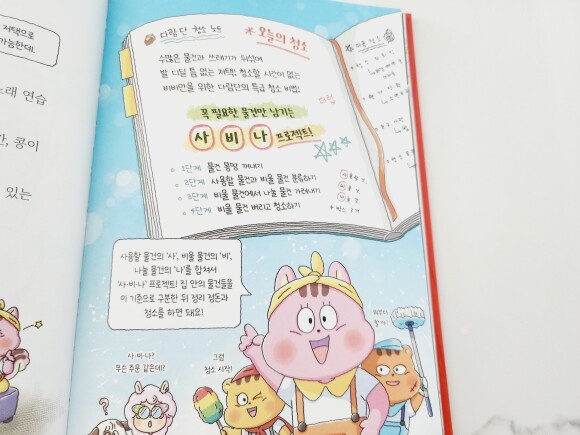 저택으로
가능한데.
노래 연습
콩이
있는
다람단 청소 노트
오늘의 청소
수많은 물건과 쓰레기가 뒤섞여
발 디딜 틈 없는 저택! 청소할 시간이 없는
비비안을 위한 다람단의 특급 청소 비법!
꼭 필요한 물건만 남기는
사 비 나 프로젝트!
1단계 물건 몽땅 꺼내기
2단계 사용할 물건과 비울 물건 분류하기
3단계 비울 물건에서 나눌 물건 가려내기
4단계 비울 물건 버리고 청소하기
사용할 물건의 '사', 비울 물건의 '비',
나눌 물건의 '나'를 합쳐서
'사·비·나' 프로젝트! 집 안의 물건들을
이 기준으로 구분한 뒤 정리 정돈과
청소를 하면 돼요!
사·비·나?
무슨 주문 같은데?
그럼
청소 시작!